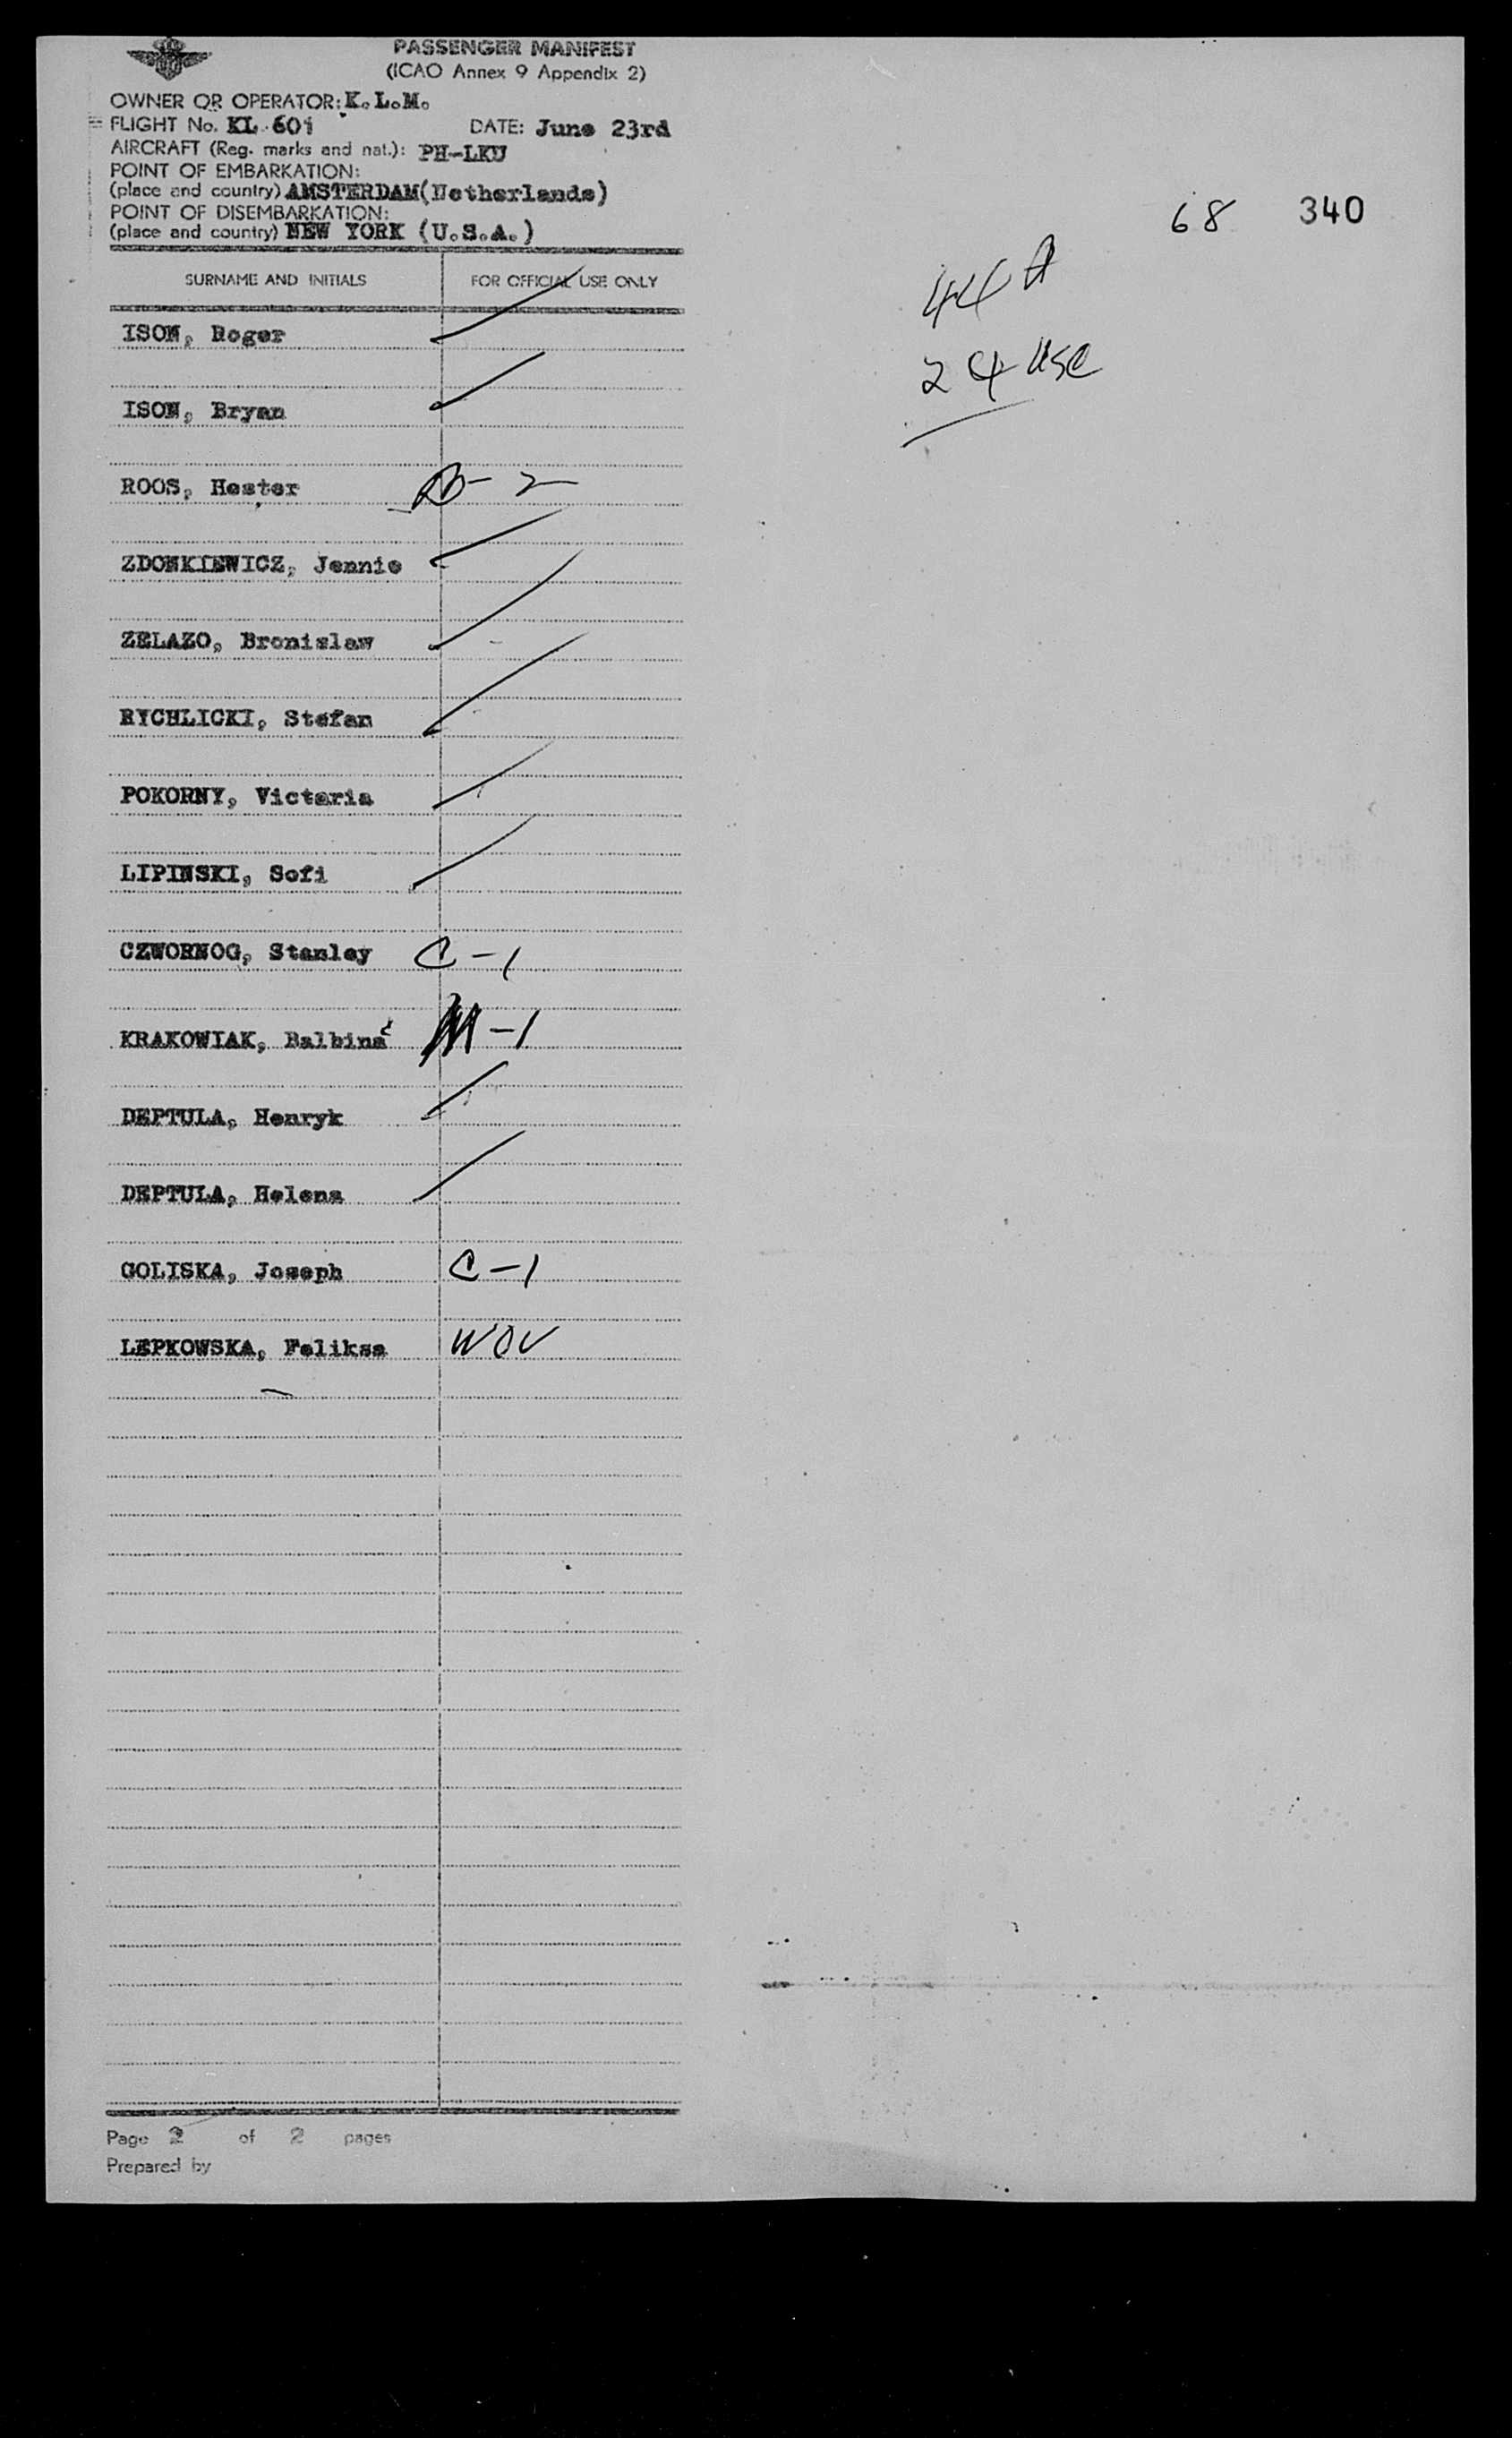 PASSENGER MANIFEST
(ICAO Annex 9 Appendix 2)
OWNER OR OPERATOR: K.L.M.
FLIGHT No. KL 601 DATE: June 23rd
AIRCRAFT (Reg. marks and nat.): PH-LKU
POINT OF EMBARKATION:
(place and country) AMSTERDAM (Netherlands)
POINT OF DISEMBARKATION:
(place and country) NEW YORK (U.S.A.)
68 340
44 A
24 USC
SURNAME AND INITIALS FOR OFFICIAL USE ONLY
ISON, Roger
ISON, Bryan
ROOS, Hester - 2
ZDONKIEWICZ, Jennie
ZELAZO, Bronislaw
RYCHLICKI, Stefan
POKORNY, Victoria
LIPINSKI, Sofi
CZWORNOG, Stanley C-1
KRAKOWIAK, Balbina M-1
DEPTULA, Henryk
DEPTULA, Helena
GOLISKA, Joseph C-1
LEPKOWSKA, Feliksa WOV
Page 2 of 2 pages
Prepared by